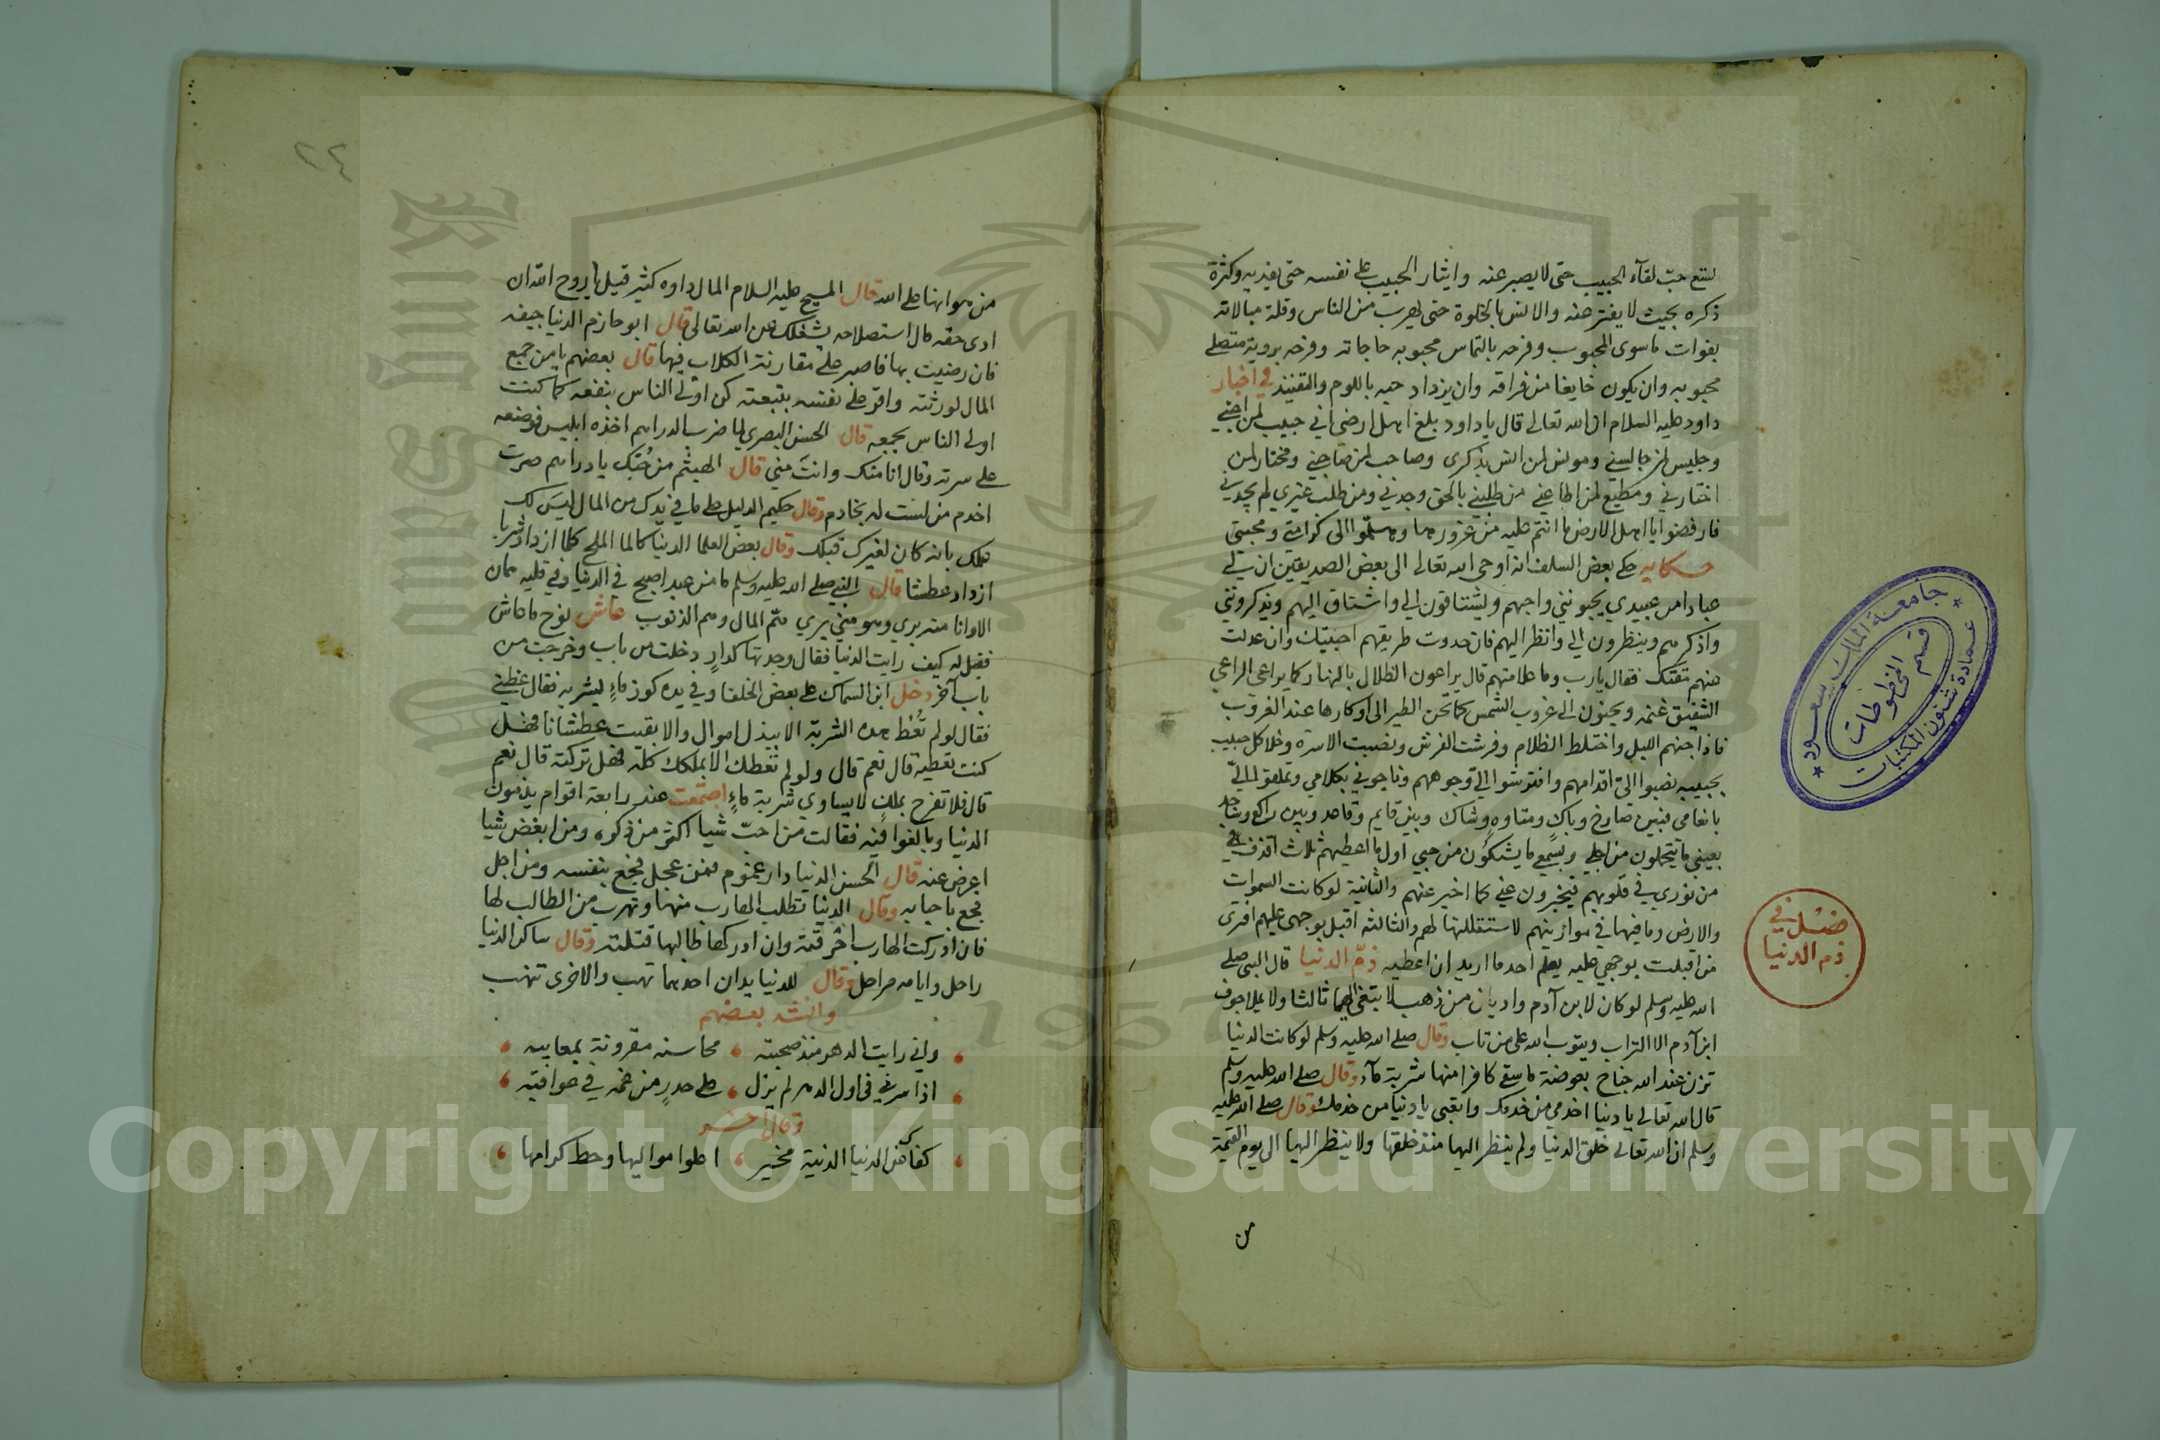 لستع حبّ لقاء الحبيب حتى لا يصبر عنه وايثار الحبيب على نفسه حتى يفديه وكثرة
ذكره بحيث لا يفتر عنه والانس بالخلوة حتى يهرب من الناس وقلة مبالاته
بفوات ما سوى المحبوب وفرحه بالتماس محبوبه حاجاته وفرحه برؤية متصلے
محبوبه وان يكون خايفا من فراقه وان يزداد حبه باللوم والتفنيد في اخبار
داود عليه السلام ان الله تعالى قال يا داود بلغ اهل ارضي اني حبيب لمن احبني
وجليس لمن جالسني ومونس لمن انس بذكري وصاحب لمن صاحبني ومختار لمن
اختارني ومطيع لمن اطاعني من طلبني بالحق وجدني ومن طلب غيري لم يجدني
فارفضوا يا اهل الارض ما انتم عليه من غرورها وهلموا الى كرامتي ومحبتي
حكاية حكي بعض السلف انه اوحى الله تعالى الى بعض الصديقين ان لي
عبادا من عبيدي يحبونني واحبهم ويشتاقون الي واشتاق اليهم ويذكرونني
واذكرهم وينظرون الي وانظر اليهم فان حدوت طريقهم احببتك وان عدلت
عنهم مقتك فقال يارب وما علامتهم قال يراعون الظلال بالنهار كما يراعى الراعي
الشفيق غنمه ويحنون الى غروب الشمس كما تحن الطير الى اوكارها عند الغروب
فاذا جنهم الليل واختلط الظلام وفرشت الفرش ونصبت الاسرة وخلا كل حبيب
بحبيبه نصبوا اليّ اقدامهم وافترشوا اليّ وجوههم وناجوني بكلامي وتملقوا اليّ
بانعامي فبين صارخ وباك ومتاوه وشاك وبين قايم وقاعد وبين راكع وساجد
بعيني ما يتحملون من اجلي وبسمعي ما يشتكون من حبي اول ما اعطيهم ثلاث اقذف
من نوري في قلوبهم فيخبرون عني كما اخبر عنهم والثانية لو كانت السموات
والارض وما فيها في موازينهم لاستقللتها لهم والثالثة اقبل بوجهي عليهم افترى
من اقبلت بوجهي عليه يعلم احد ما اريد ان اعطيه ذمّ الدنيا قال النبي صلى
الله عليه وسلم لو كان لابن آدم واديان من ذهب لابتغى لهما ثالثا ولا يملا جوف
ابن آدم الا التراب ويتوب الله على من تاب وقال صلى الله عليه وسلم لو كانت الدنيا
تزن عند الله جناح بعوضة ما سقى كافرا منها شربة ماء وقال صلى الله عليه وسلم
قال الله تعالى يا دنيا اخدمي من خدمك واتعبي يا دنيا من خدمك وقال صلى الله عليه
وسلم ان الله تعالى خلق الدنيا ولم ينظر اليها منذ خلقها ولا ينظر اليها الى يوم القيمة
من
فصل في
ذم الدنيا
جامعة الملك سعود
قسم المخطوطات
عمادة شئون المكتبات
٢٤
من هوانها على الله قال المسيح عليه السلام المال داوه كثير قيل يا روح الله ان
ادى حقه قال استصلاحه يشغلك عن الله تعالى قال ابو حازم الدنيا جيفه
فان رضيت بها فاصبر على مقارنة الكلاب فيها قال بعضهم يا من جمع
المال لورثته واقر على نفسه بتبعته كن اولى الناس بنفعه كما كنت
اولى الناس بجمعه قال الحسن البصري لما ضرب الدراهم اخذه ابليس فوضعه
على سرته وقال انا منك وانت مني قال الهيثم من حُبّك يا دراهم صرت
اخدم من لست له بخادم وقال حكيم الدليل على ما في يدك من المال ليس لك
علمك بانه كان لغيرك قبلك وقال بعض العلما الدنيا كالما المالح كلما ازداد شربا
ازداد عطشا قال النبي صلى الله عليه وسلم ما من عبد اصبح في الدنيا وفي قلبه همان
الا وانا منه بري وهو مني بري همّ المال وهم الذنوب عاش نوح ما عاش
فقيل له كيف رايت الدنيا فقال وجدتها كدارٍ دخلت من باب وخرجت من
باب آخر دخل ابن السماك على بعض الخلفا وفي يده كوز ماءٍ ليشربه فقال عظني
فقال لو لم تُعْط هذه الشربة الا ببذل اموال والا بقيت عطشانا فهل
كنت تعطيه قال نعم قال ولو لم تعطك الا بملكك كله فهل تركته قال نعم
قال فلا تفرح بملكٍ لا يساوي شربة ماءٍ اجتمعت عند رابعة اقوام يذمون
الدنيا وبالغوا فيه فقالت من احبّ شيا اكثر من ذكره ومن ابغض شيا
اعرض عنه قال الحسن الدنيا دار غموم فمن عجل فجع بنفسه ومن اجل
فجع باحبابه وقال الدنيا تطلب الهارب منها وتهرب من الطالب لها
فان ادركت الهارب احرقته وان ادركها طالبها قتلته وقال ساكن الدنيا
راحل وايامه مراحل وقال للدنيا يدان احدهما تهب والاخرى تنهب
وانشد بعضهم
واني رايت الدهر منذ صحبته محاسنه مقرونة بمعايبه
اذا سرني في اول الدهر لم يزل على حدرٍ من غمه في عواقبه
وقال اخر
كفاك عن الدنيا الدنية مخبر اعلوا مواليها وحط كرامها
King Saud University
1957
Copyright © King Saud University